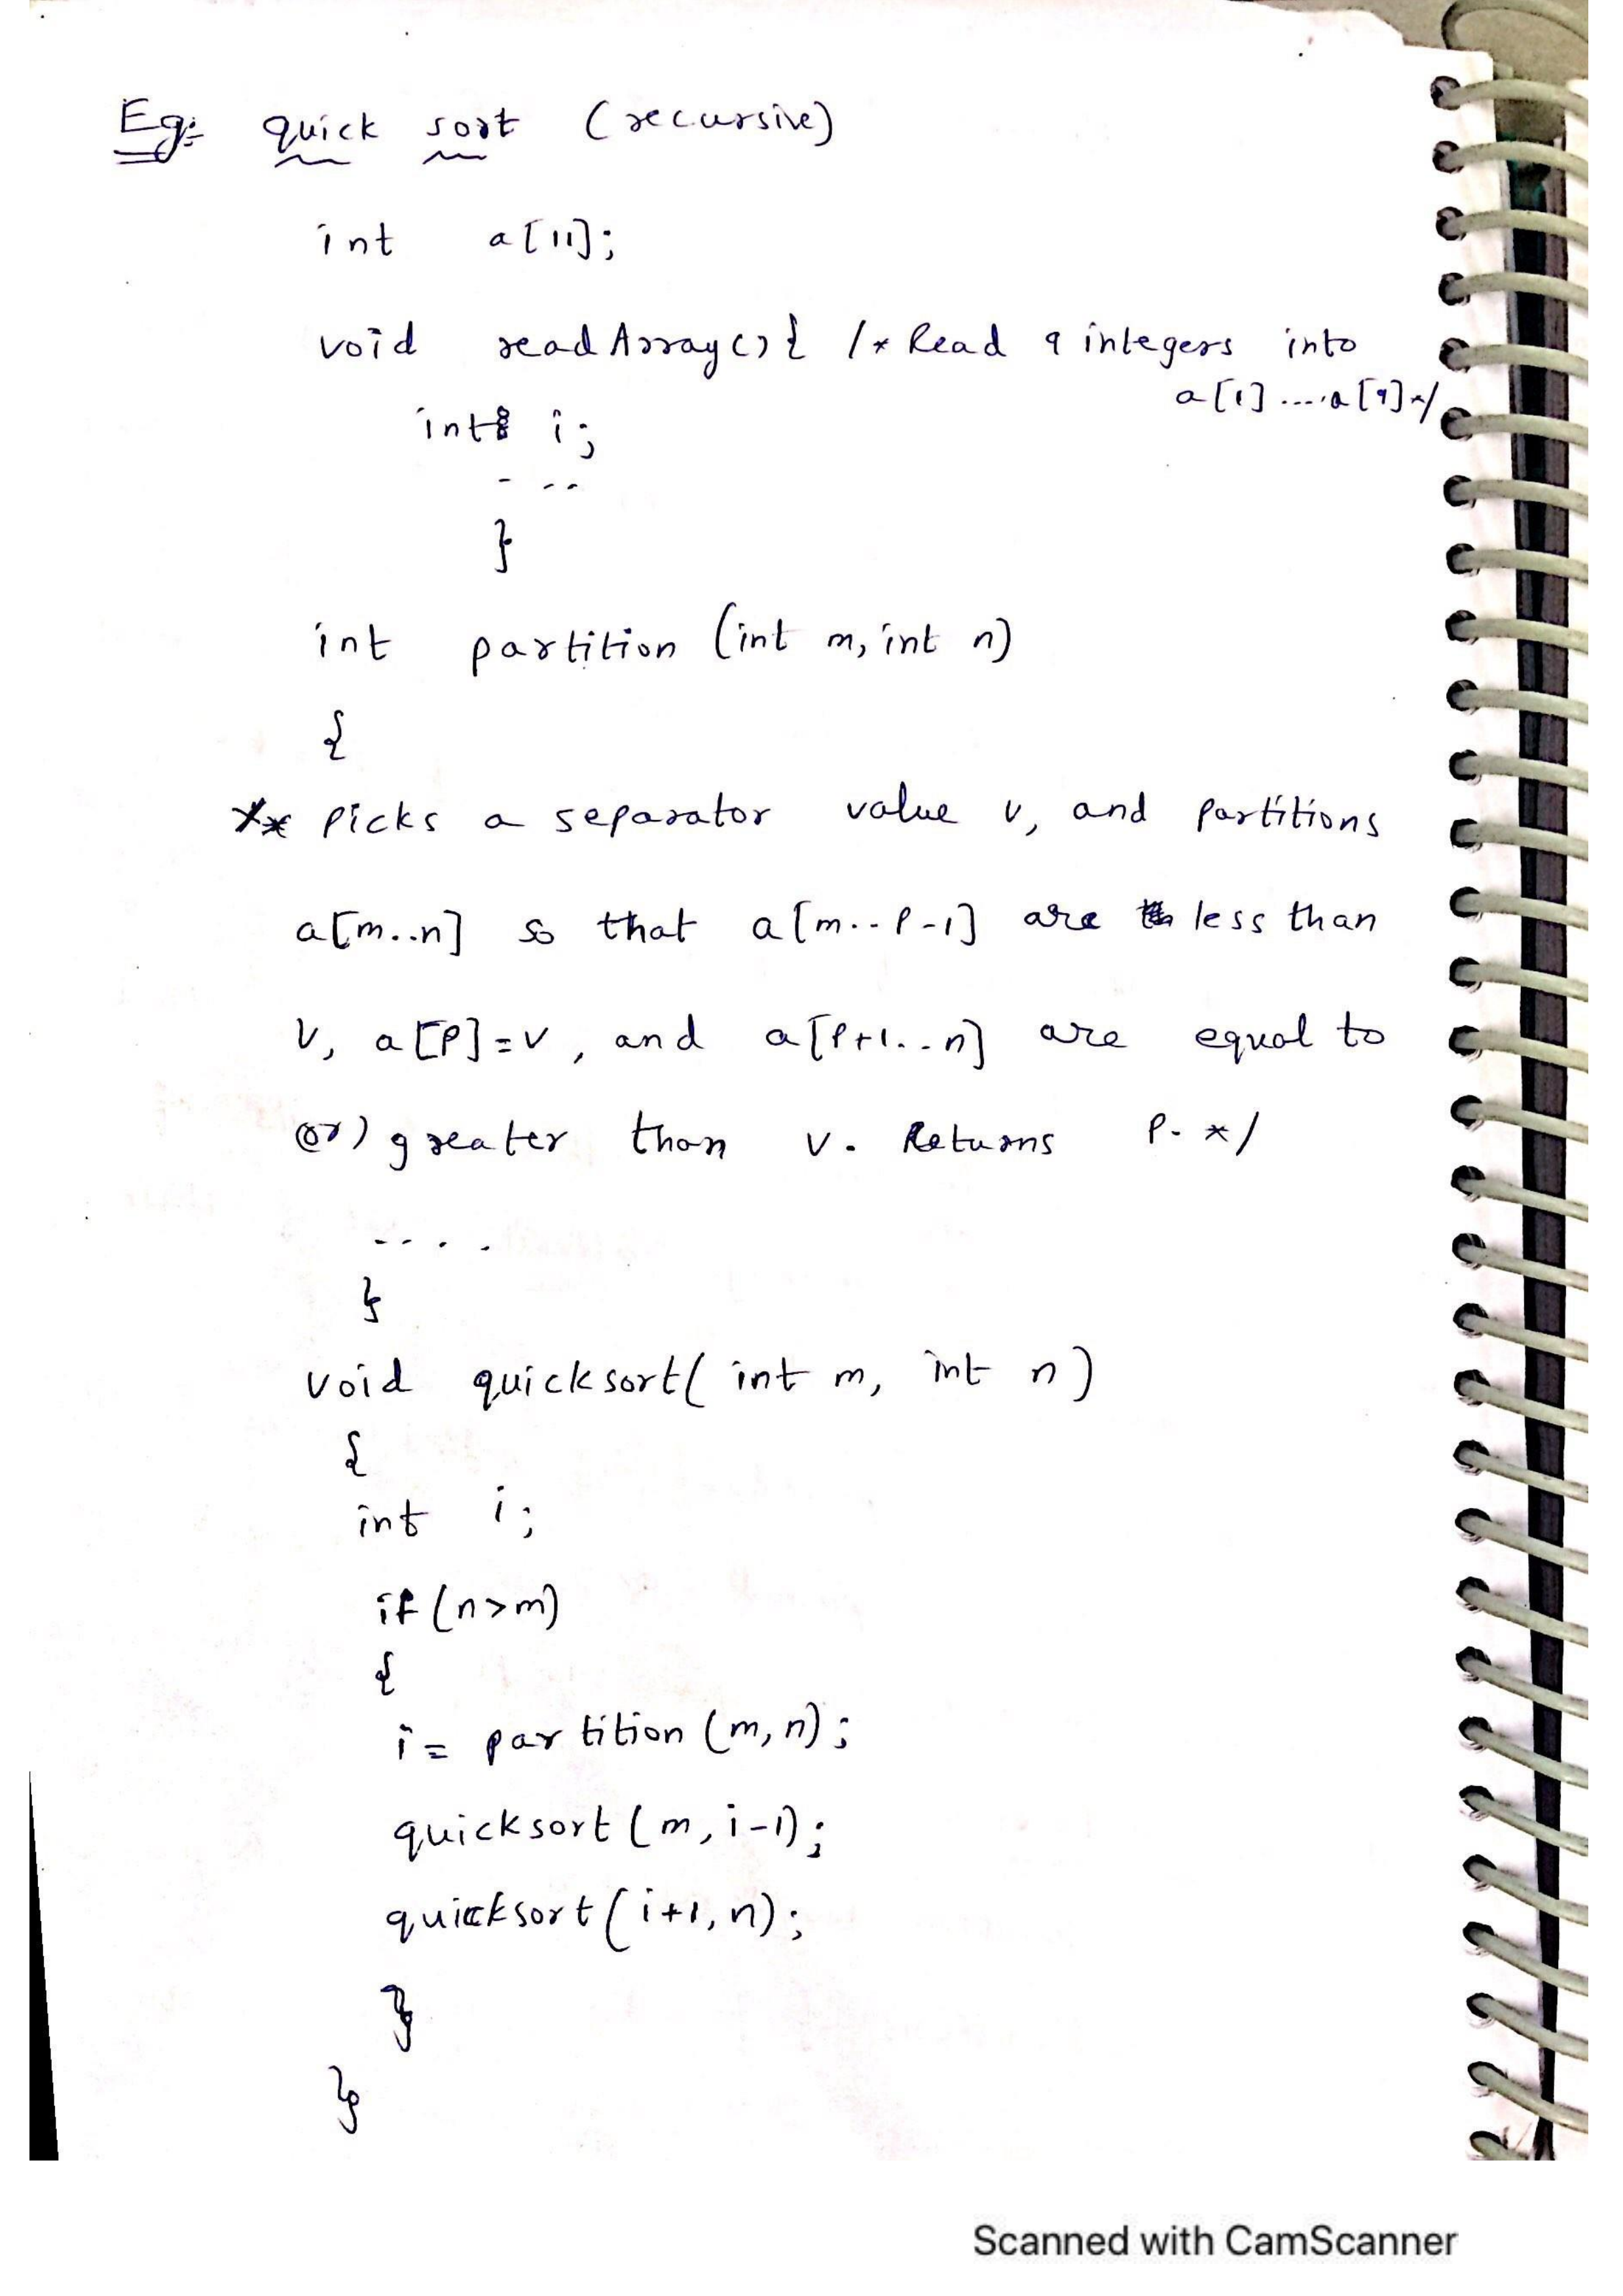 Eg:- quick sort (recursive)
int a[11];
void readArray() { /* Read 9 integers into
a[1] ....a[9] */
int i;
- --
}
int partition (int m, int n)
{
/* picks a separator value v, and partitions
a[m..n] so that a[m..p-1] are less than
v, a[p]=v, and a[p+1..n] are equal to
(or) greater than v. Returns p. */
....
}
void quicksort( int m, int n )
{
int i;
if (n>m)
{
i = partition (m, n);
quicksort (m, i-1);
quicksort (i+1, n);
}
}
Scanned with CamScanner